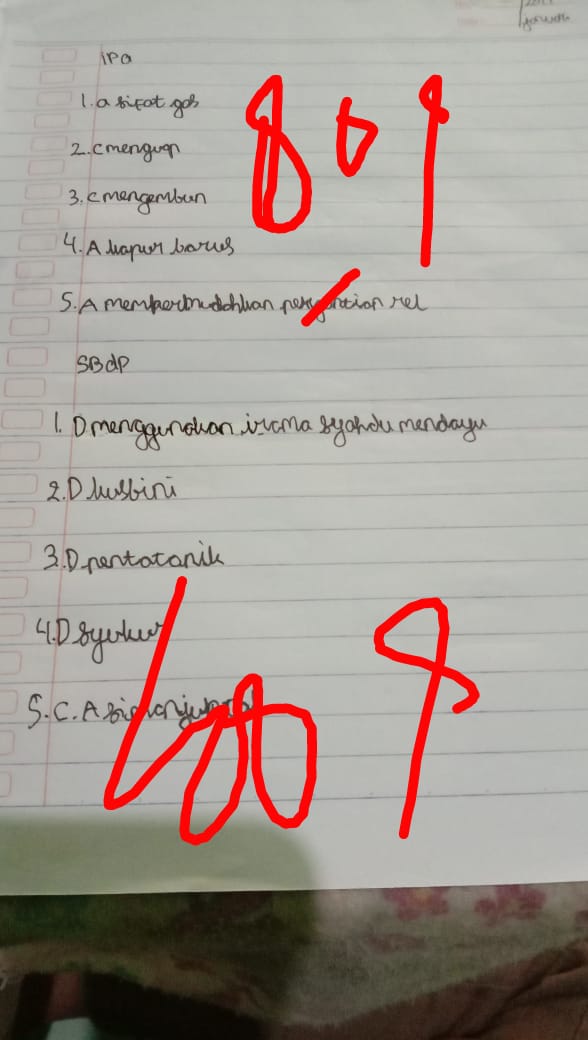 IPA
1. a sifat gas
2. C menguap
3. C mengembun
4. A kapur barus
5. A mempermudahkan rel
SBdP
1. D menggunakan irama syahdu mendayu
2. D kusbini
3. D pentatonik
4. D syukur
5. C. A
80
100